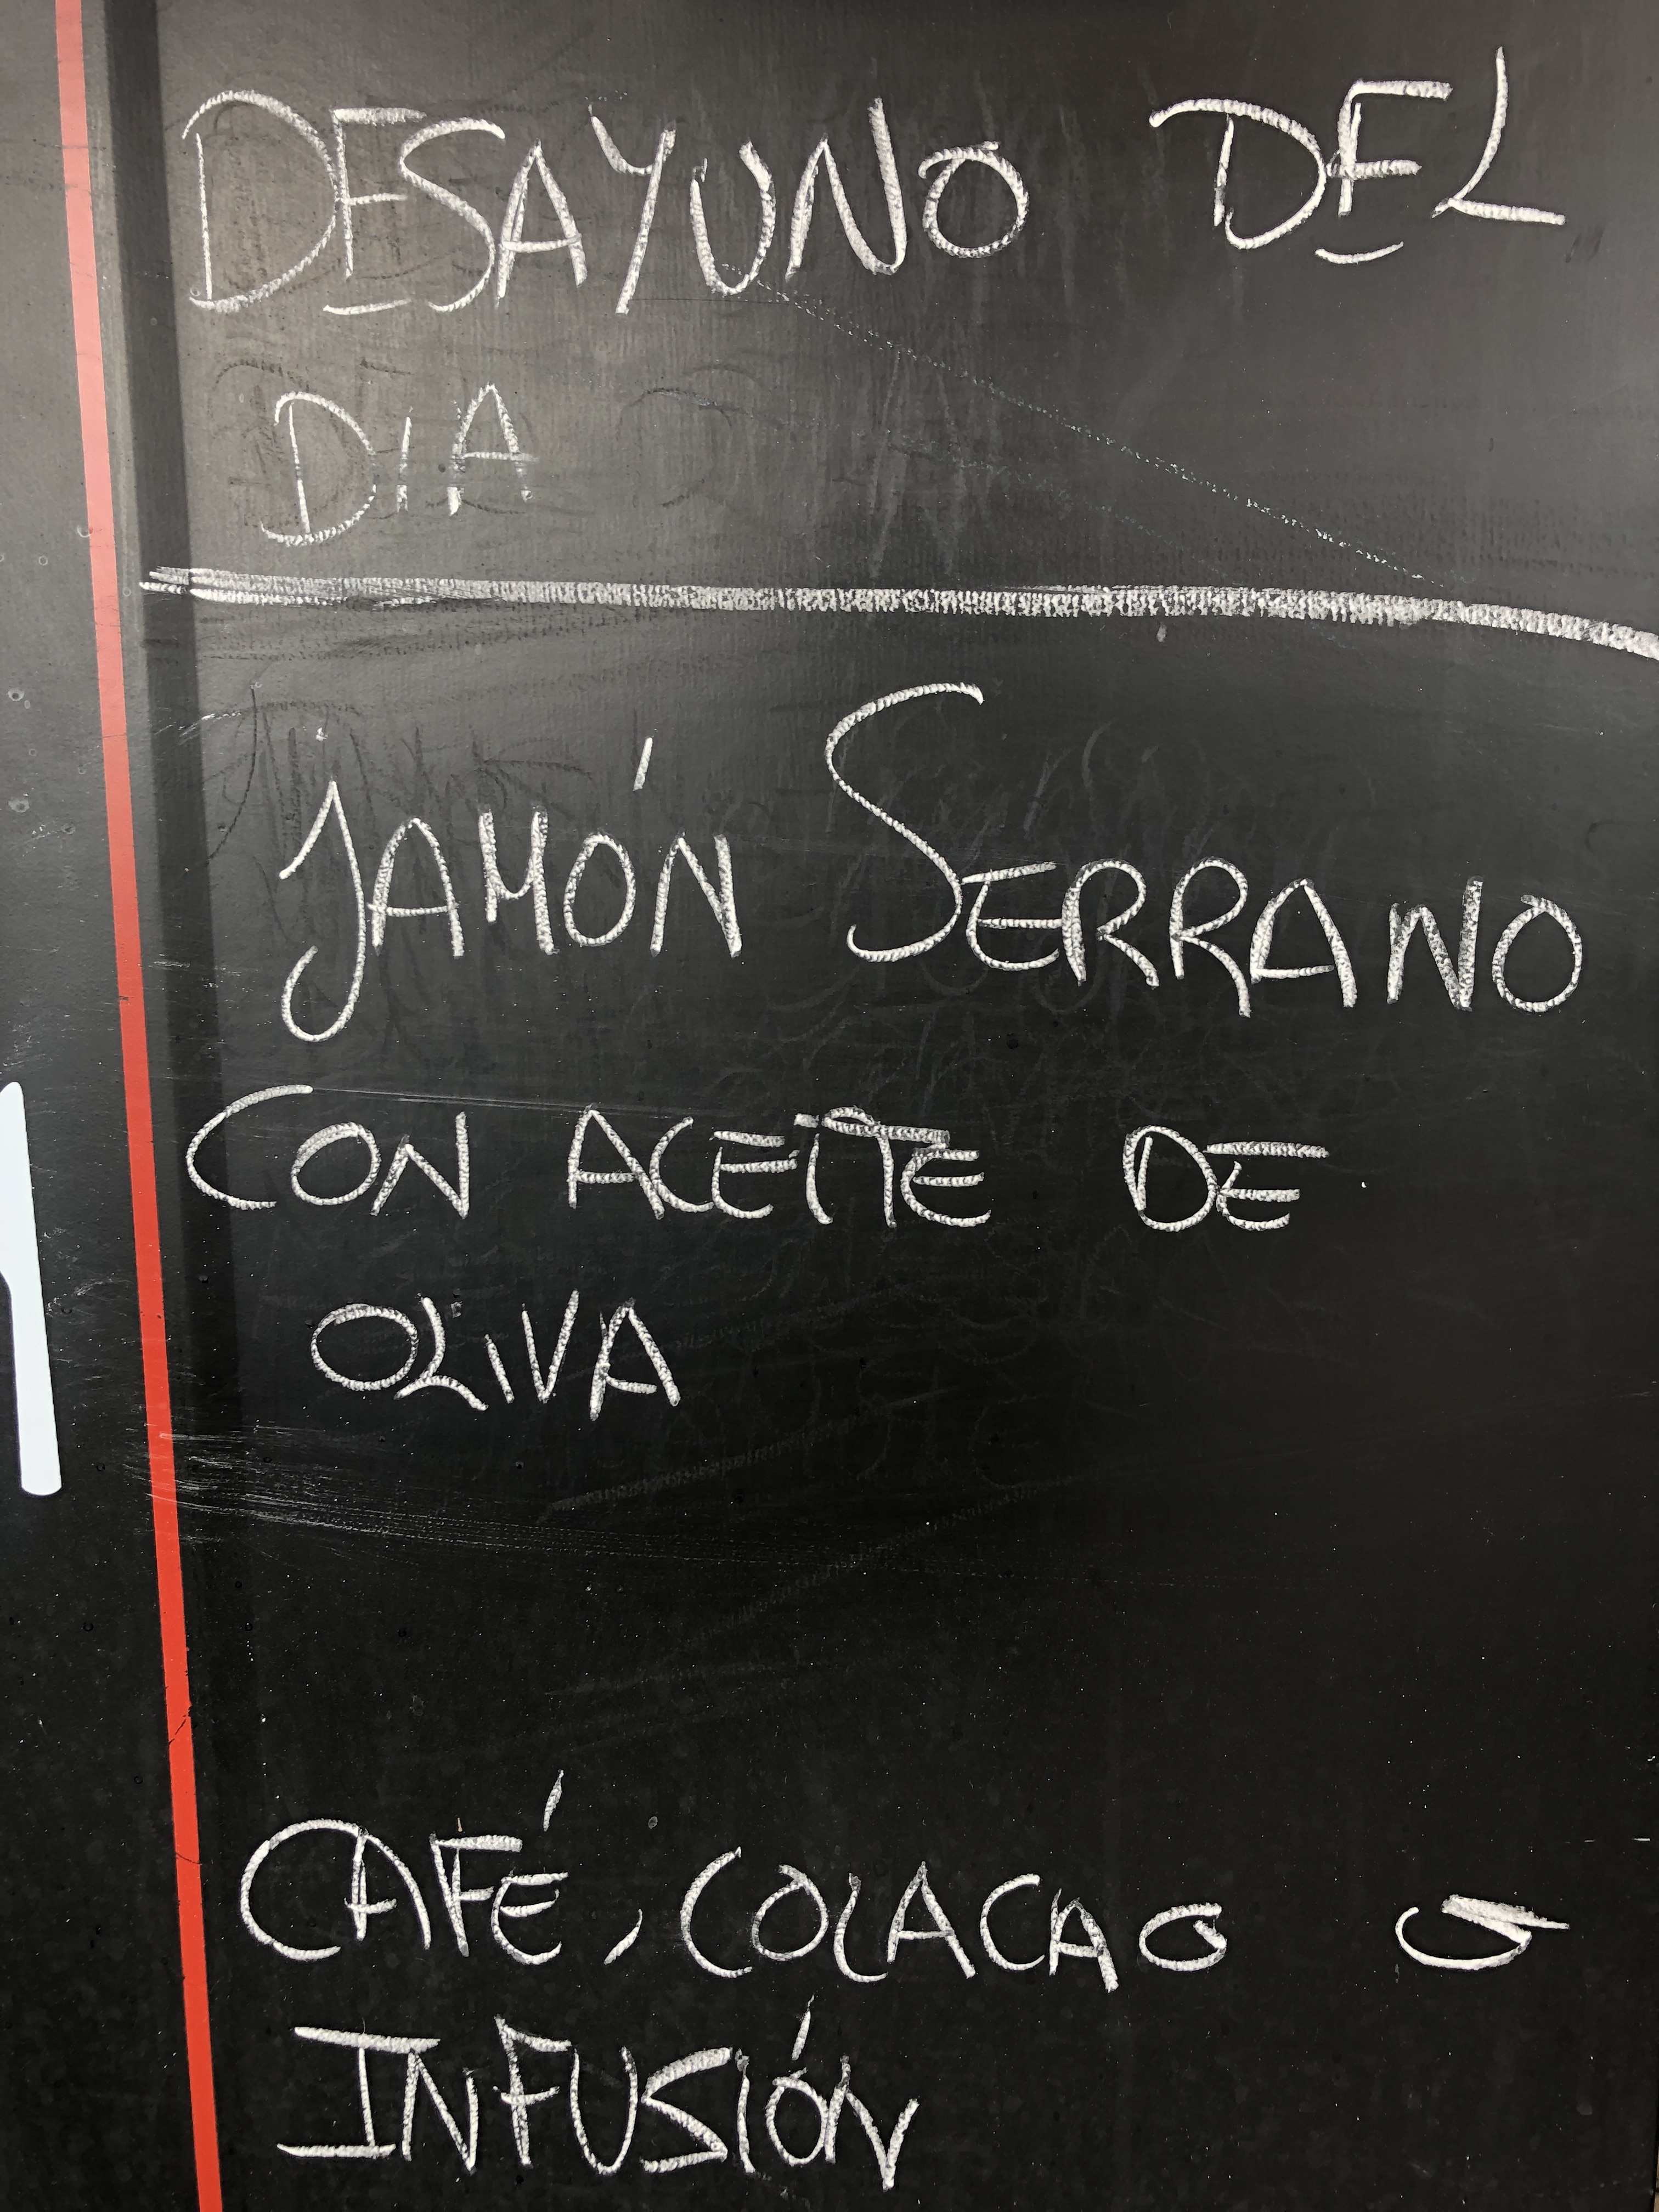 DESAYUNO DEL
DIA
JAMÓN SERRANO
CON ACEITE DE
OLIVA
CAFÉ, COLACAO O
INFUSIÓN